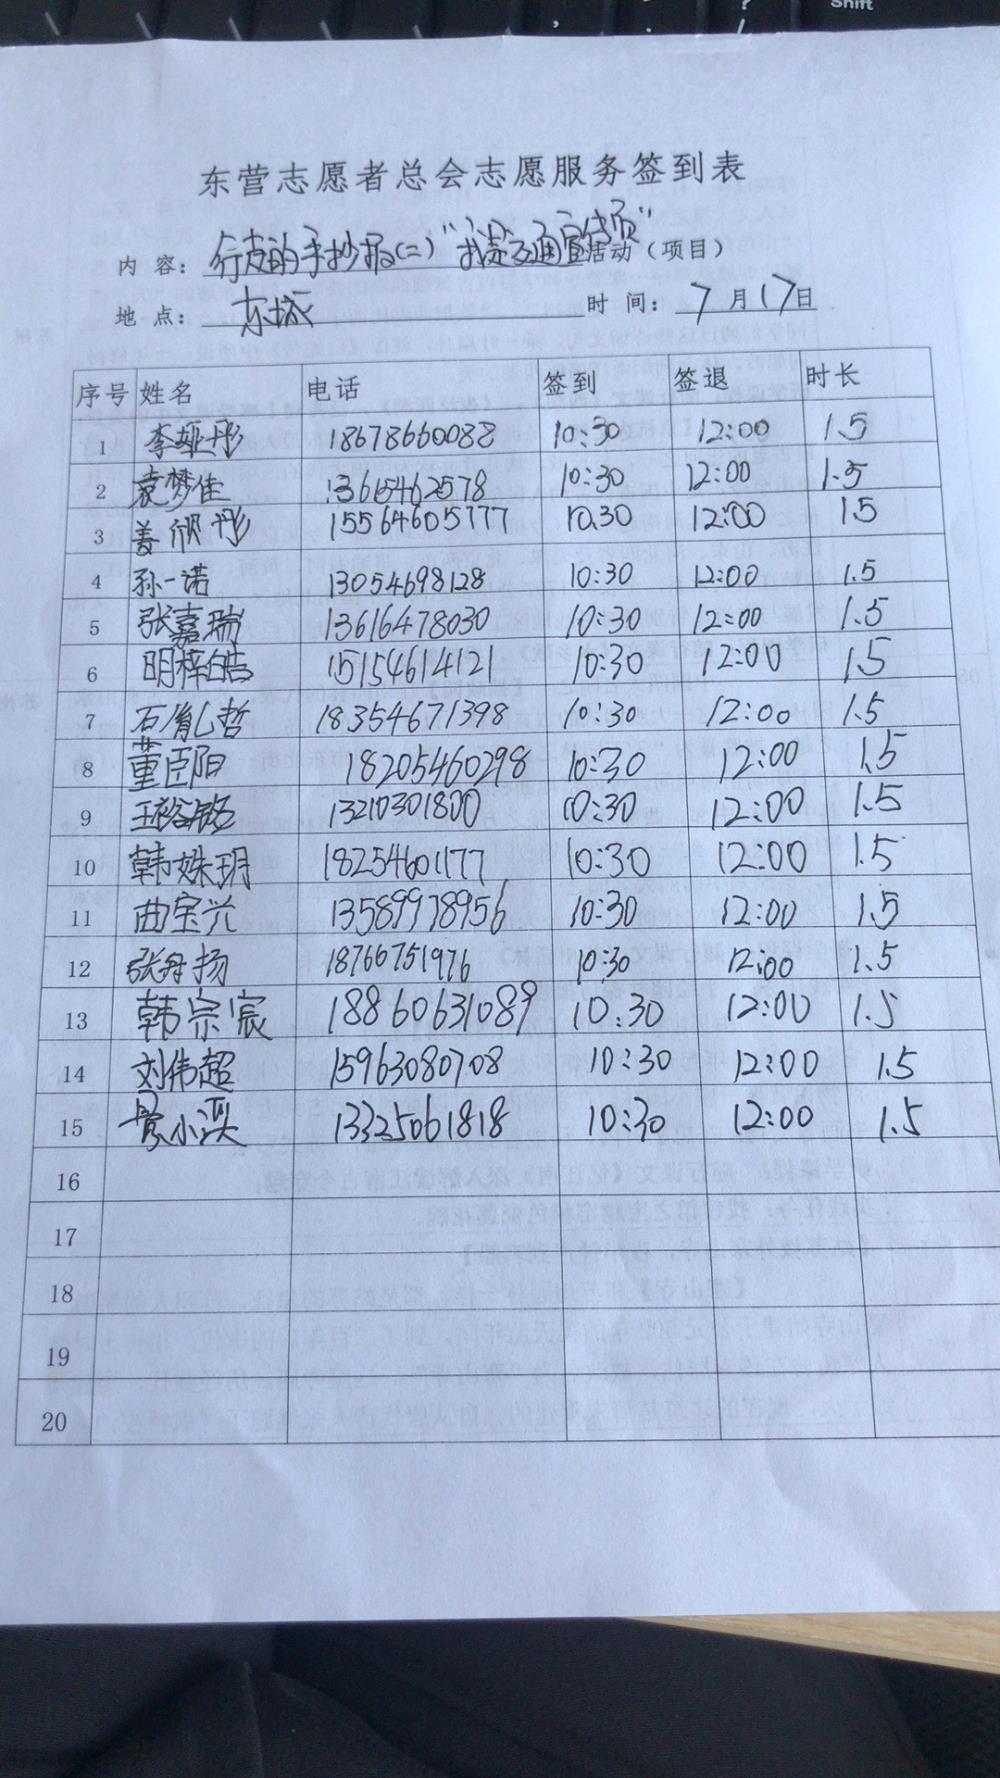 Shift
东营志愿者总会志愿服务签到表
内 容： 行走的手抄报(二)"我是交通宣传员"活动（项目）
地 点： 东城 时 间： 7 月 17 日
序号 姓名 电话 签到 签退 时长
1 李娅彤 18678660088 10:30 12:00 1.5
2 袁梦佳 13615462578 10:30 12:00 1.5
3 姜欣彤 15564605777 10.30 12:00 1.5
4 孙一诺 13054698128 10:30 12:00 1.5
5 张嘉瑞 13616478030 10:30 12:00 1.5
6 明梓皓 15154614121 10:30 12:00 1.5
7 石胤哲 18354671398 10:30 12:00 1.5
8 董臣阳 18205460298 10:30 12:00 1.5
9 王裕铭 13210301800 10:30 12:00 1.5
10 韩姝玥 18254601177 10:30 12:00 1.5
11 曲宝兴 13589978956 10:30 12:00 1.5
12 张舟扬 18766751976 10:30 12:00 1.5
13 韩宗宸 18860631089 10:30 12:00 1.5
14 刘伟超 15963080708 10:30 12:00 1.5
15 小淏 13325061818 10:30 12:00 1.5
16
17
18
19
20